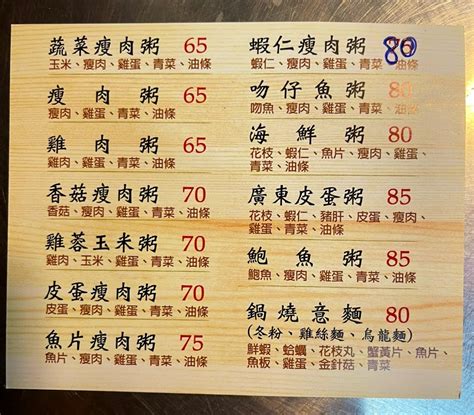 蔬菜瘦肉粥 65
玉米、瘦肉、雞蛋、青菜、油條
瘦肉粥 65
瘦肉、雞蛋、青菜、油條
雞肉粥 65
雞肉、雞蛋、青菜、油條
香菇瘦肉粥 70
香菇、瘦肉、雞蛋、青菜、油條
雞蓉玉米粥 70
雞肉、玉米、雞蛋、青菜、油條
皮蛋瘦肉粥 70
皮蛋、瘦肉、雞蛋、青菜、油條
魚片瘦肉粥 75
魚片、瘦肉、雞蛋、青菜、油條
蝦仁瘦肉粥 80
蝦仁、瘦肉、雞蛋、青菜、油條
吻仔魚粥 80
吻魚、瘦肉、雞蛋、青菜、油條
海鮮粥 80
花枝、蝦仁、魚片、瘦肉、雞蛋、
青菜、油條
廣東皮蛋粥 85
花枝、蝦仁、豬肝、皮蛋、瘦肉、
雞蛋、青菜、油條
鮑魚粥 85
鮑魚、瘦肉、雞蛋、青菜、油條
鍋燒意麵 80
(冬粉、雞絲麵、烏龍麵)
鮮蝦、蛤蠣、花枝丸、蟹黃片、魚片、
魚板、雞蛋、金針菇、青菜